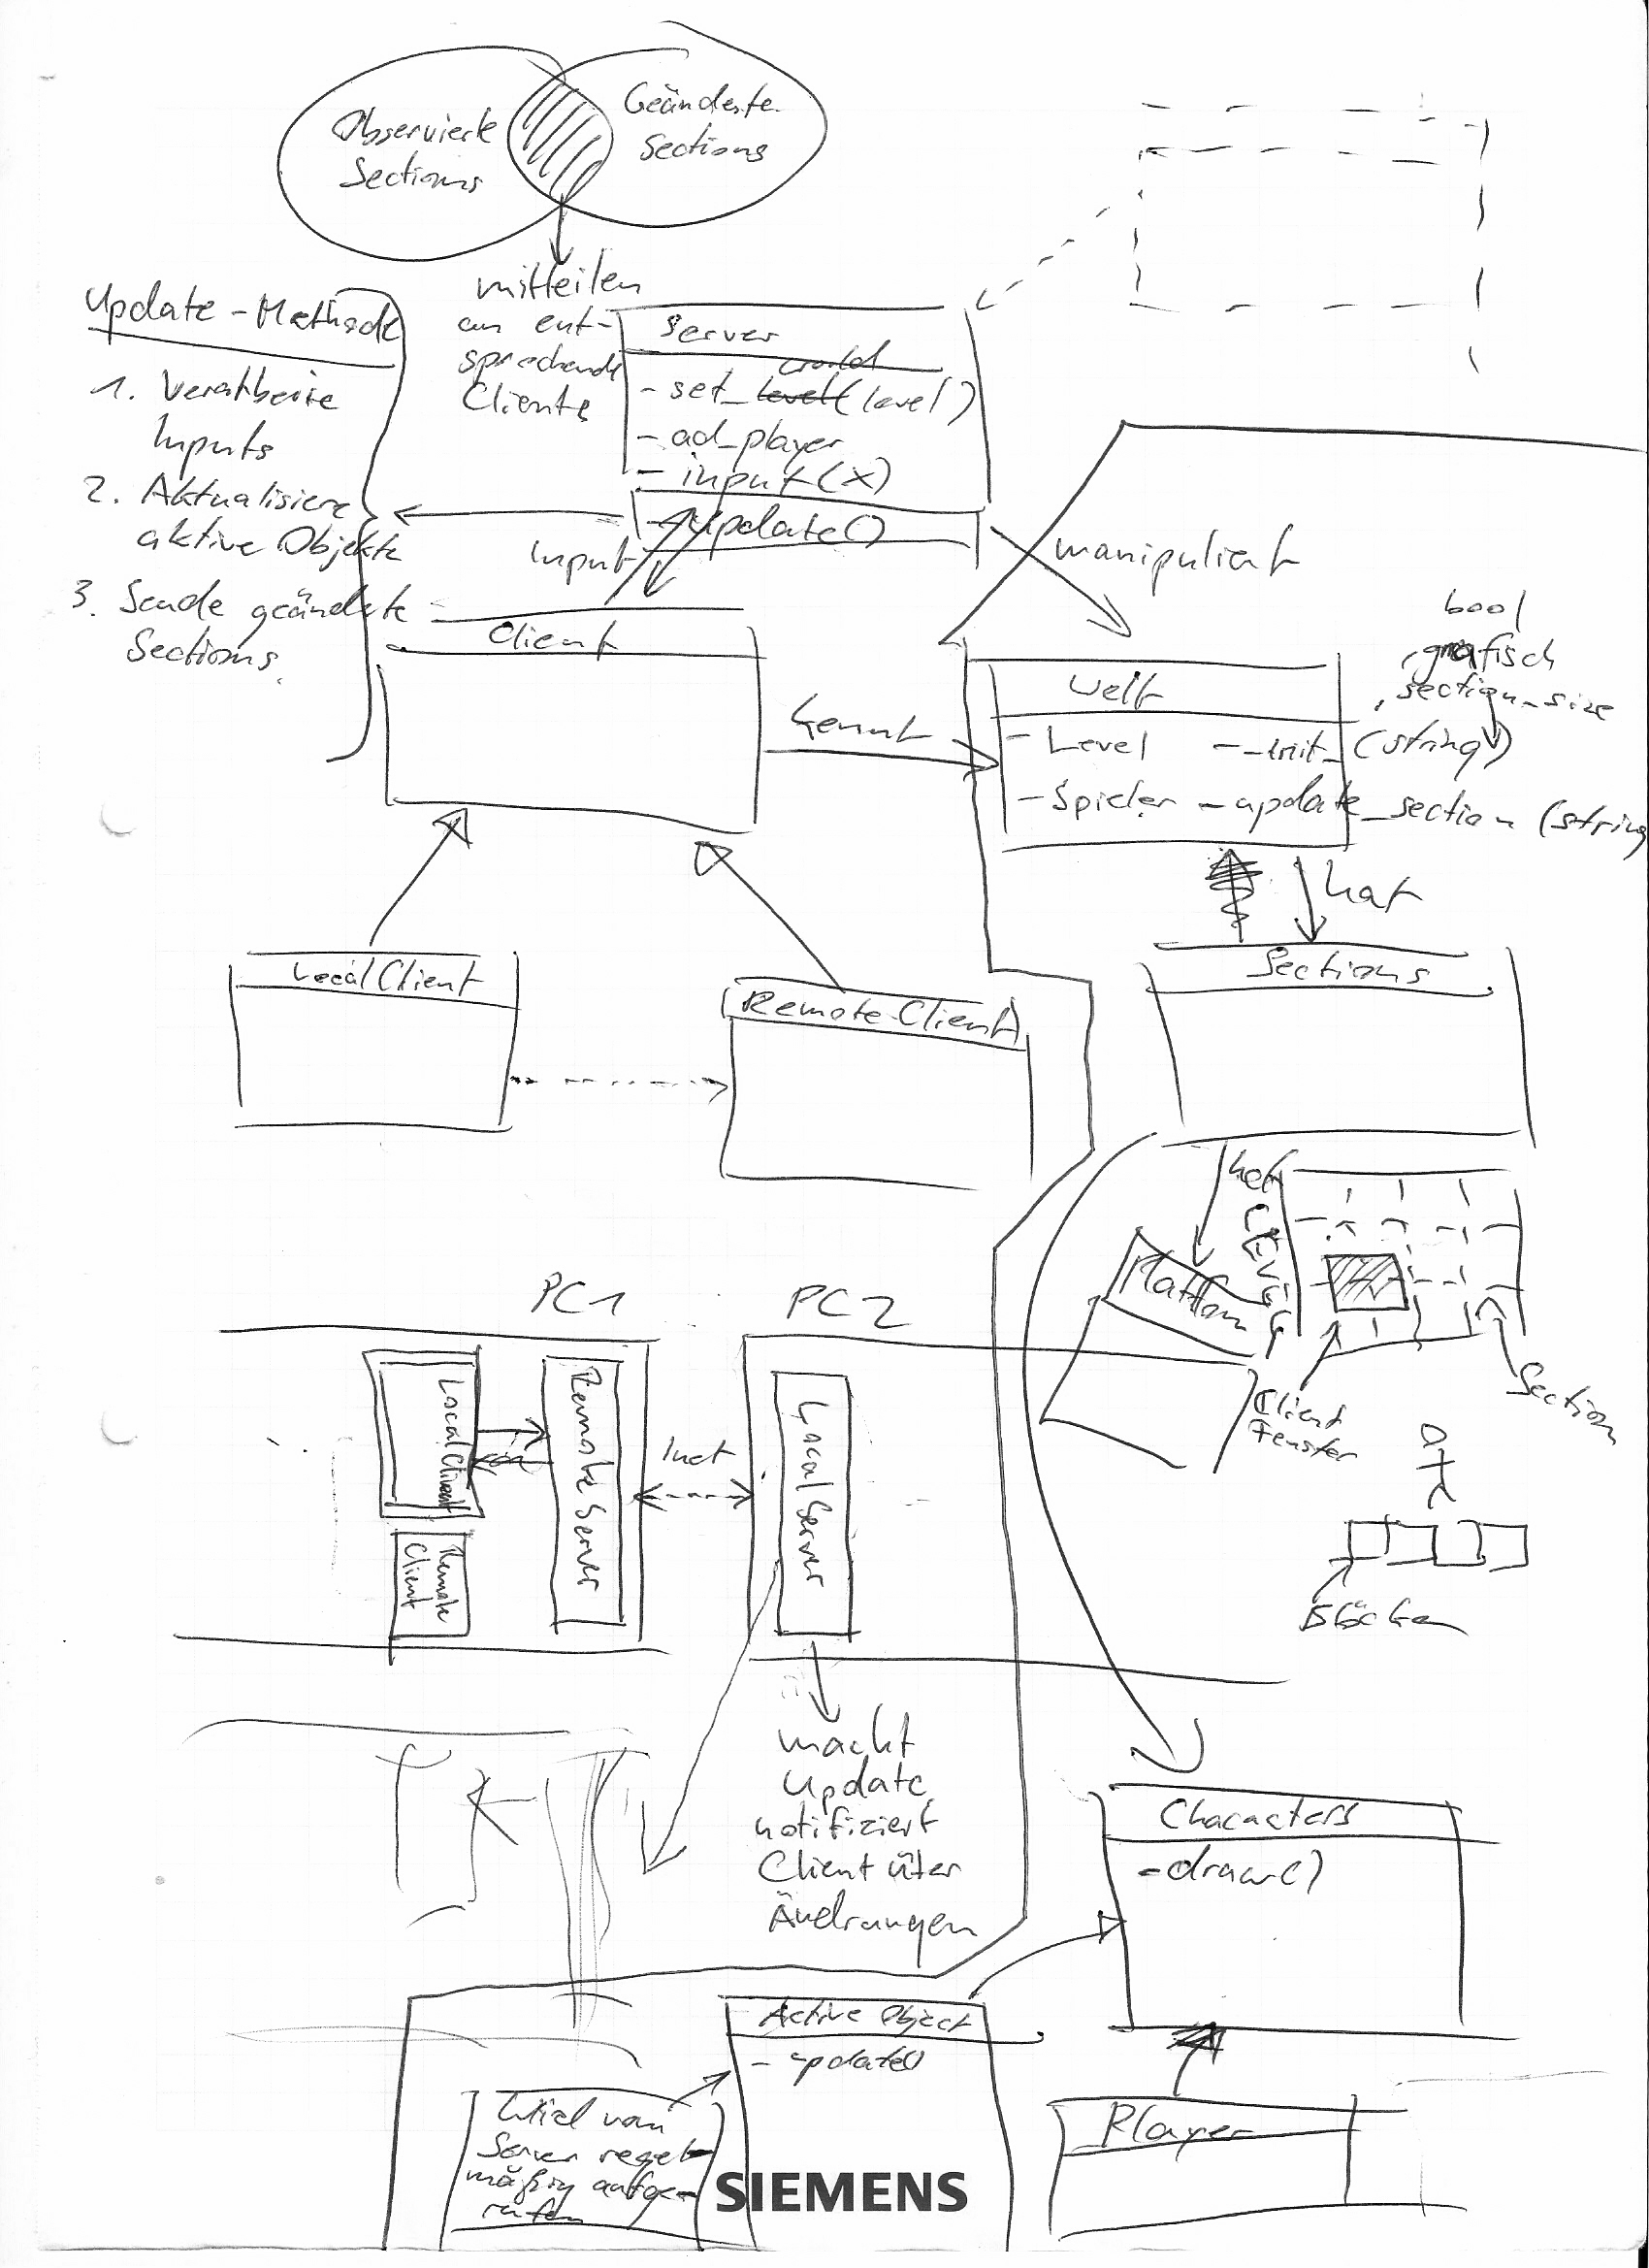 Observierte
Sections
Geänderte
Sections
mitteilen
an ent-
sprechende
Clients
Update-Methode
1. Verarbeite
Inputs
2. Aktualisiere
aktive Objekte
3. Sende geänderte
Sections
Server
world
- set_level(level)
- ad_player
- input(x)
- update()
Input
manipuliert
Client
kennt
bool
grafisch
, section_size
Welt
- Level
- _init_ (string)
- Spieler
- update_section (string
hat
LocalClient
Remote Client
Sections
hat
Level
Plattform
Client
Fenster
Section
Blöcke
PC1
PC2
LocalClient
Remote Server
Remote
Client
Inet
Local Server
macht
Update
notifiziert
Client über
Änderungen
Characters
-draw()
Active Object
- update()
Wird vom
Server regel-
mäßig aufge-
rufen
Player
SIEMENS